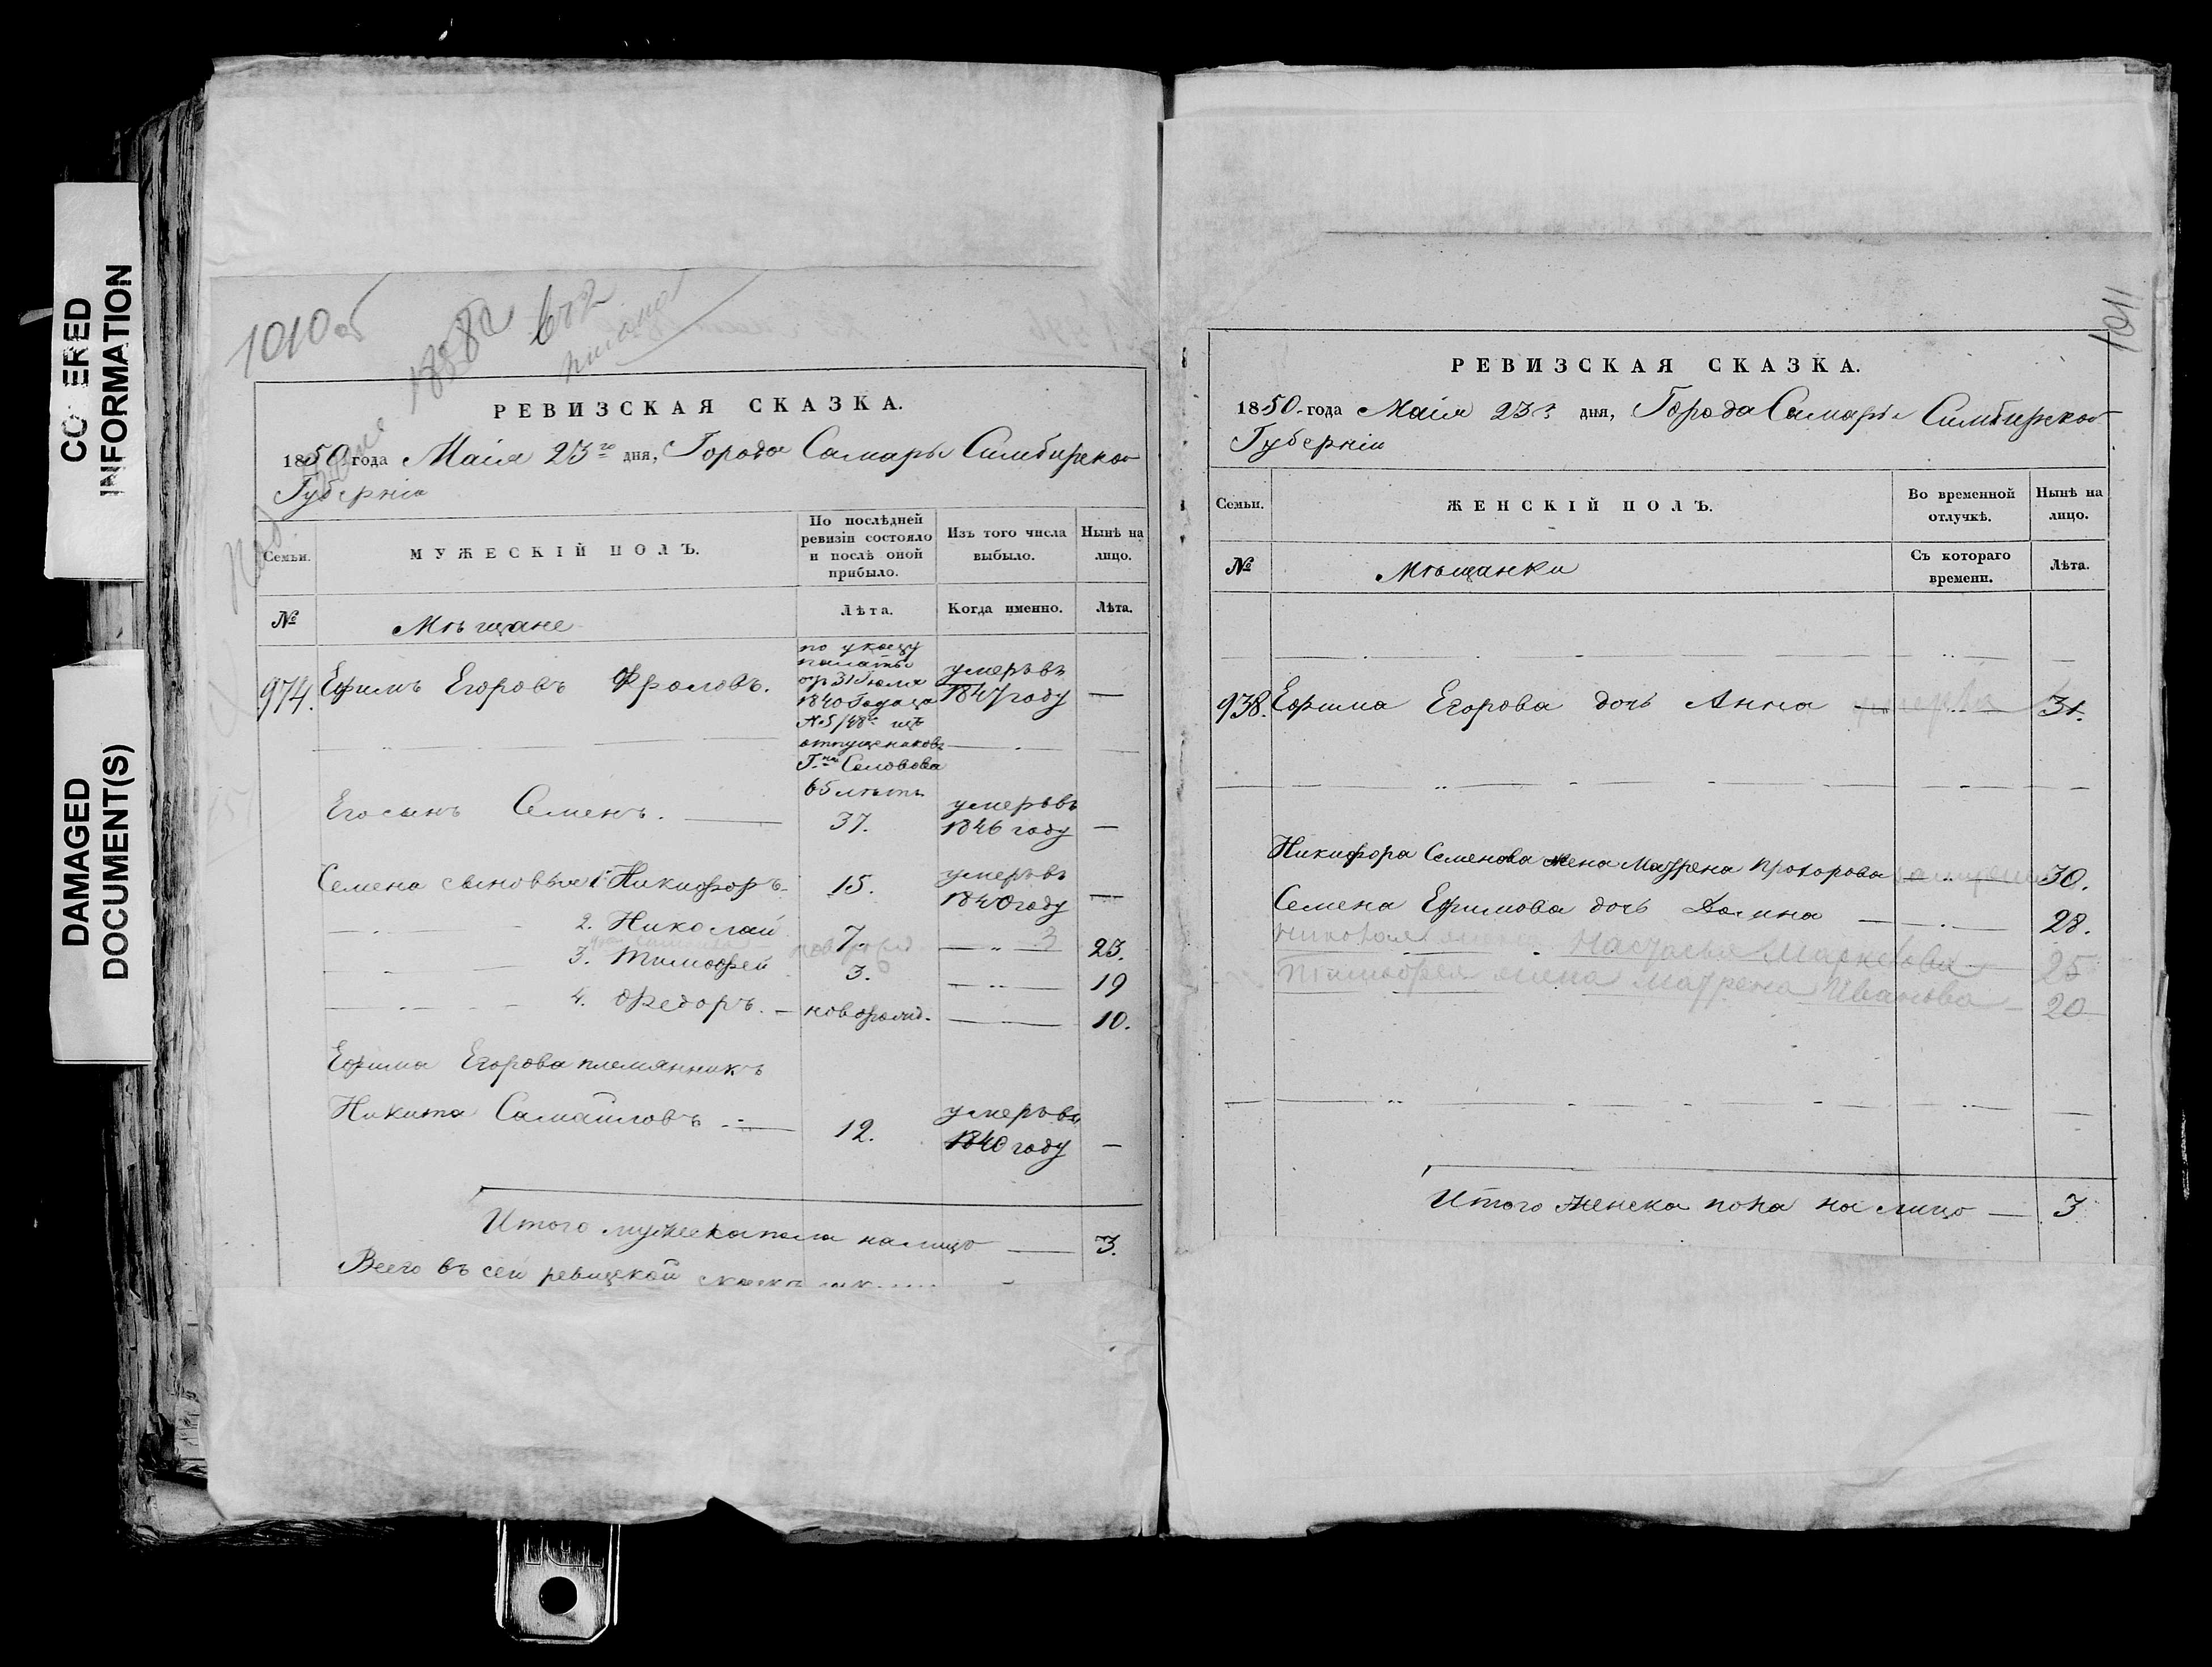 CO ERED
INFORMATION
DAMAGED
DOCUMENT(S)
1010 об
1858 672
РЕВИЗСКАЯ СКАЗКА.
1850 года Маія 23го дня, Города Самары Симбирской
Губерніи
Семьи.
МУЖЕСКІЙ ПОЛЪ.
По послѣдней
ревизіи состояло
и послѣ оной
прибыло.
Изъ того числа
выбыло.
Нынѣ на
лицо.
№
Мѣщане
Лѣта.
Когда именно.
Лѣта.
974. Ефимъ Егоровъ Фроловъ.
по указу
палаты
отъ 31 Іюля
1840 года за
№ 5148 изъ
отпущениковъ
Г.на Соловова
65 лѣтъ
умеръ въ
1847 году —
Его сынъ Семенъ. — 37. умеръ въ
1846 году —
Семена сыновья 1 Никифоръ 15. умеръ въ
1840 году —
2. Николай 7. — „ — 3 23.
3. Тимофей 3. — „ — 19
4. Федоръ. — новорожд. — „ — 10.
Ефима Егорова племянникъ
Никита Самайловъ — 12. умеръ въ
1840 году —
Итого мужеска пола на лицо — 3.
Всего въ сей ревизской
1011
РЕВИЗСКАЯ СКАЗКА.
1850 года Маія 23го дня, Города Самары Симбирской
Губерніи
Семьи.
ЖЕНСКІЙ ПОЛЪ.
Во временной
отлучкѣ.
Нынѣ на
лицо.
№
Мѣщанки
Съ котораго
времени.
Лѣта.
938. Ефима Егорова дочь Анна — „ — 31.
Никифора Семенова жена Матрена Прохорова — „ — 30.
Семена Ефимова дочь Домна — „ — 28.
Николая жена Настасья Маркелова 25
Тимофея жена Матрена Иванова 20
Итого женска пола на лицо — 3